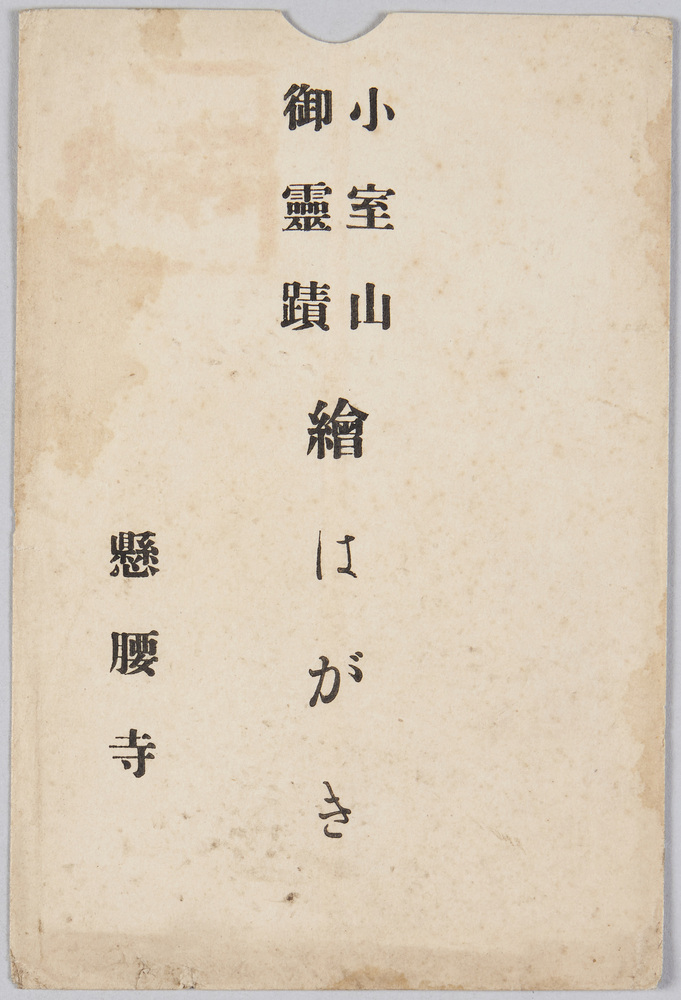 小室山
御靈蹟
繪はがき
懸腰寺